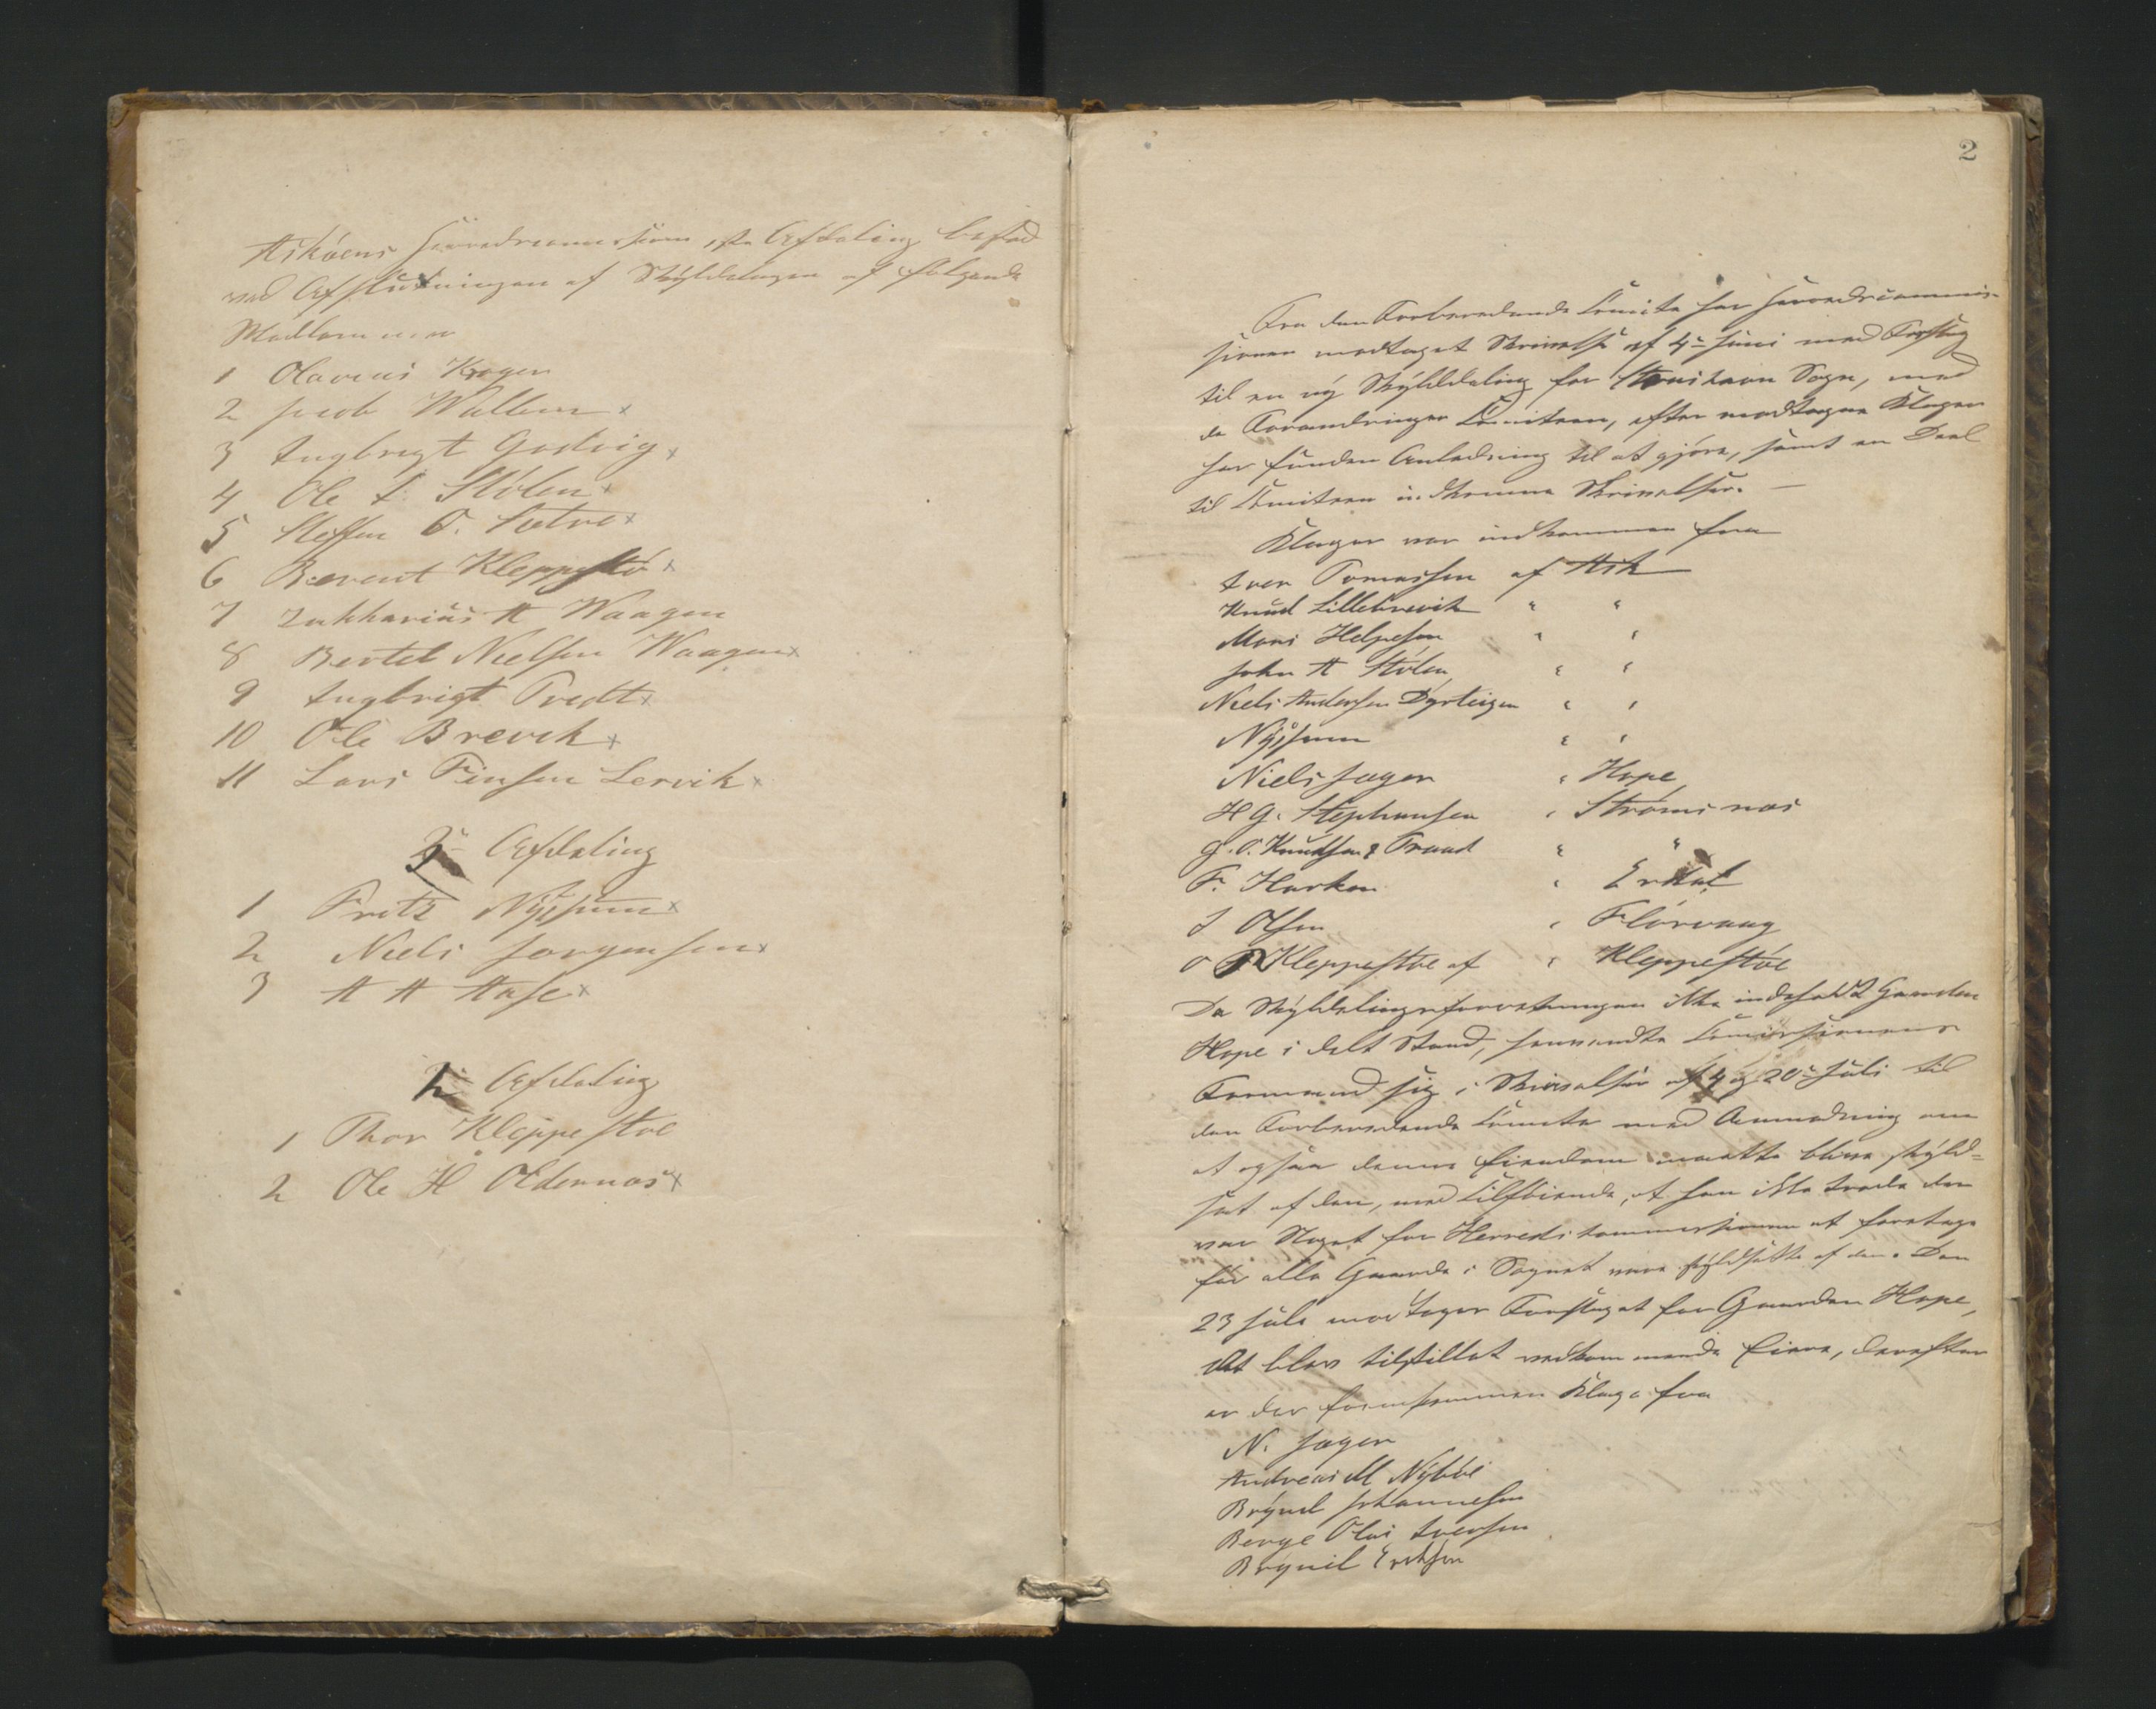 Askøens Herredscommission, 1ste Afdeling bestod
ved Afslutningen af Skylddelingen af følgende
Medlemmer
1 Olaveus Krogen
2 Jacob Wallem x
3 Ingbrigt Godvig x
4 Ole I. Stölen x
5 Steffen O. Sætre x
6 Berent Kleppestö x
7 Zakkarias A Waagen
8 Bertel Nielsen Waagen x
9 Ingbrigt Tvedt x
10 Ole Brevik x
11 Lars Finsen Lervik x
3 Afdeling
1 Fritz x
2 Niels Jørgensen x
3 A A Aase x
2 Afdeling
1 Thor Kleppestøe
2 Ole H Oldernæs x
2
Fra den Forberedende Comite har Herredscommis-
sionen modtaget Skrivelse af 4de Juni med Forslag
til en ny Skylddeling for Sogn, med
de Forandringer Comiteen, efter modtagne Klager
har funden Anledning til at gjøre, samt en Deel
til Comiteen indkomne Skrivelser. —
Klager var indkommen fra
Iver Tomassen af Ask
Knud Lillebrevik " "
Mons Helgesen " "
John A Stölen " "
Niels Andersen Dyrteigen " "
" "
Niels Jæger " Hope
H G. Stephansen " Strømsnæs
G. O. Knudsen & " "
F. Harken " Erdal
I Olsen " Flörvaag
O Kleppestöe af " Kleppestöe
Da Skylddelingsforretningen ikke indeholdt Gaarden
Hope i delt Stand, henvendte Comissionens
Formand sig i Skrivelser af 4 og 20de Juli til
den Forberedende Comite med Anmodning om
at ogsaa denne Eiendom maatte blive skyld-
sat af den, med Tilføiende, at han ikke troede der
var Noget for Herredskommissionen at foretage
før alle Gaarde i Sognet vare skyldsatte af den. Den
23 Juli modtoges Forslaget for Gaarden Hope,
det blev tilstillet vedkommende Eiere, derefter
er der fremkommen Klage fra
N. Jæger
Andreas M Nÿböe
Brynel Johannesen
Berge Olai Iversen
Brynil Eriksen